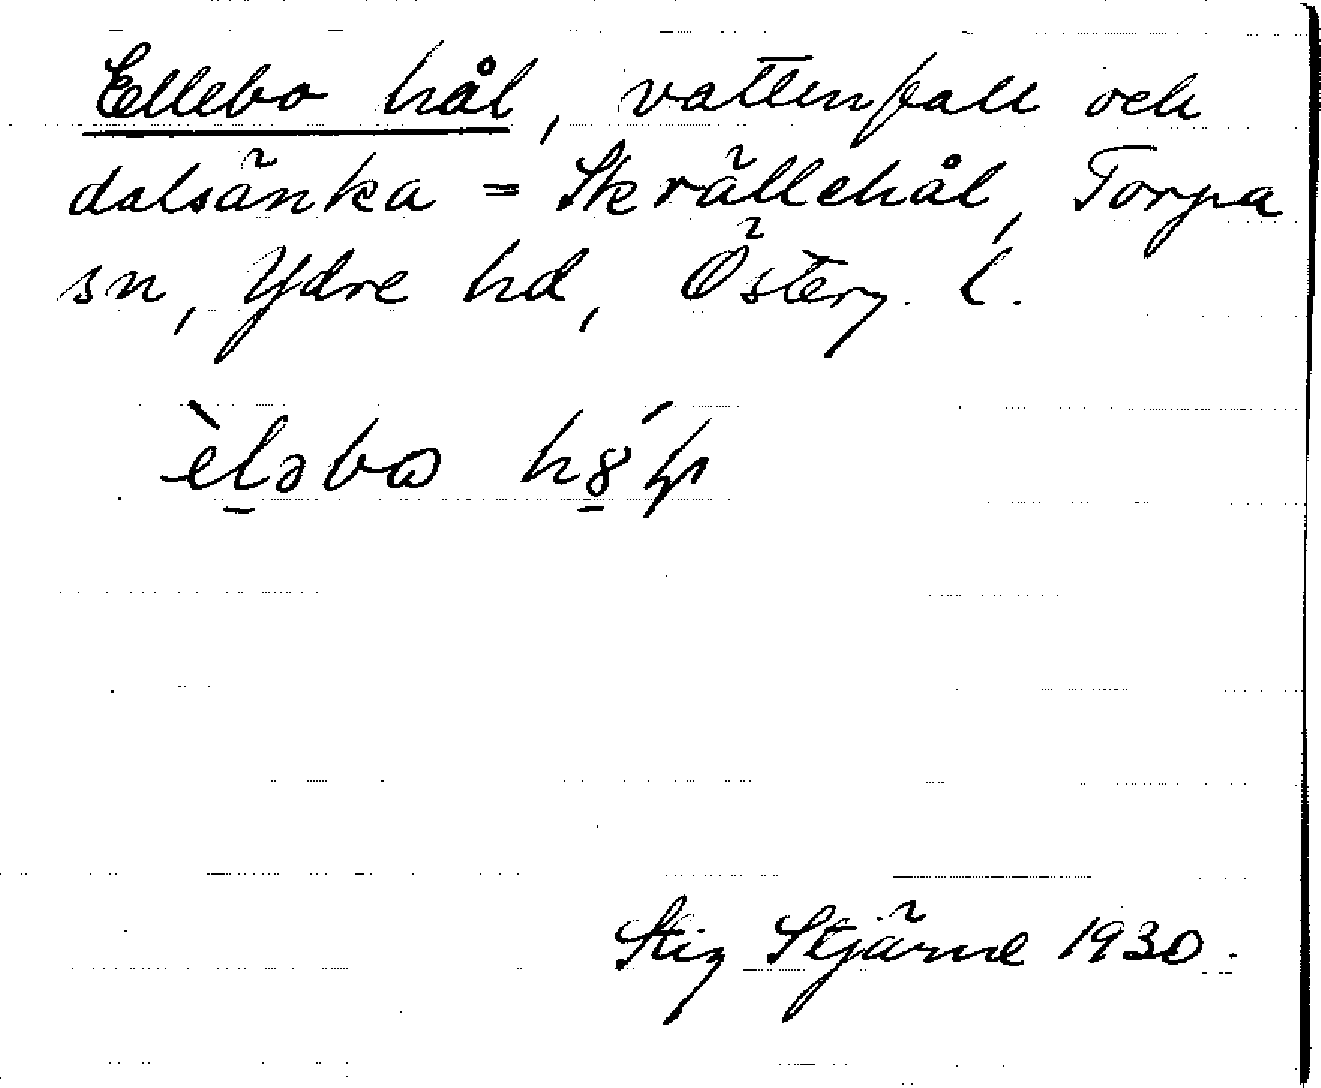 Ellebo hål, vattenfall och
dalsänka = Skrällehål, Torpa
sn, Ydre hd, Österg. l.
èl̠əbɷ
Stig Stjärne 1930.